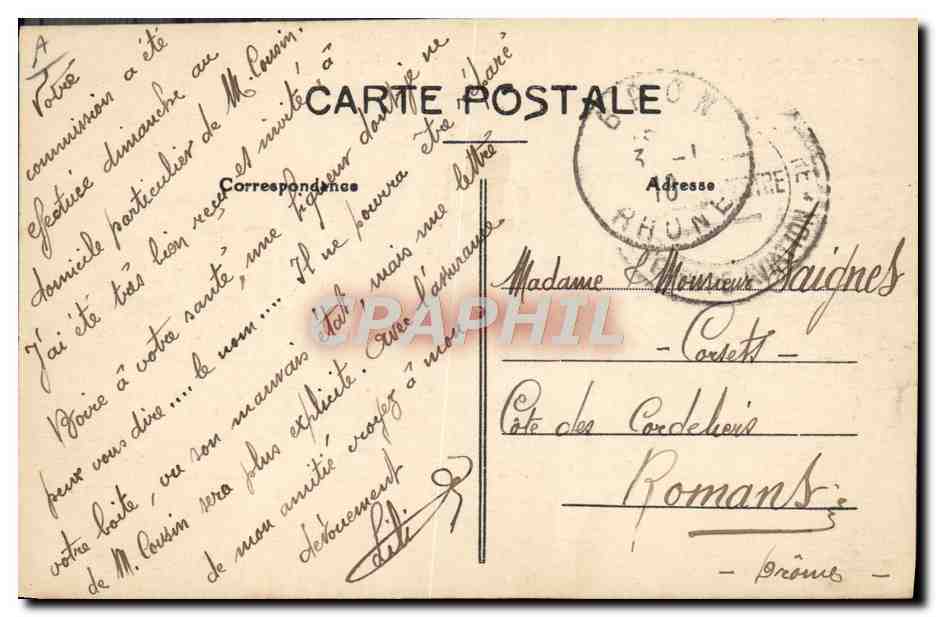 A
CARTE POSTALE
Correspondance
Adresse
Votre
commission a été
effectuée dimanche au
domicile particulier de M. Cousin.
J'ai été très bien reçu et invité à
Boire à votre santé, une liqueur dont je ne
peux vous dire.... le nom.... Il ne pourra être réparé
votre boite, vu son mauvais état, mais une lettre
de M. Cousin sera plus explicite. Avec l'assurance
de mon amitié croyez à mon
dévouement
Lili
Madame & Monsieur Saignes
- Corsets -
Côte des Cordeliers
Romans
- Drôme -
BRON
3 -1
16
RHONE
AVIATION
CPAPHIL